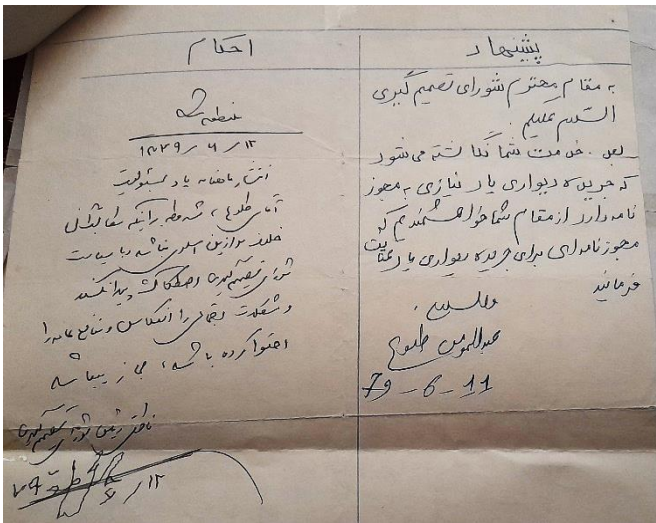 پیشنهاد
به مقام محترم شورای تصمیم گیری
السلام علیکم .
بعد . خدمت شما نگاشته می شود
که جریده دیواری یاد نیازی به مجوز
نامه دارد از مقام شما خواهشمندیم که
مجوز نامه ای برای جریده دیواری یاد عنایت
فرمائید
والسلام .
عبدالمومن طلوع
79-6-11
احکام
۱۳۷۹/۶/۱۲
انتشار ماهنامه یاد به مسئولیت
آقای طلوع ، مشروط بر اینکه
خلاف موازین اسلامی نباشد و با سیاست
شورای تصمیم گیری اصطکاک پیدا نکند
و مشکلات اجتماعی را انعکاس و منافع عامه را
احتوا کرده باشد ، مجاز میباشد
رئیس شورای تصمیم گیری
۶/۱۲